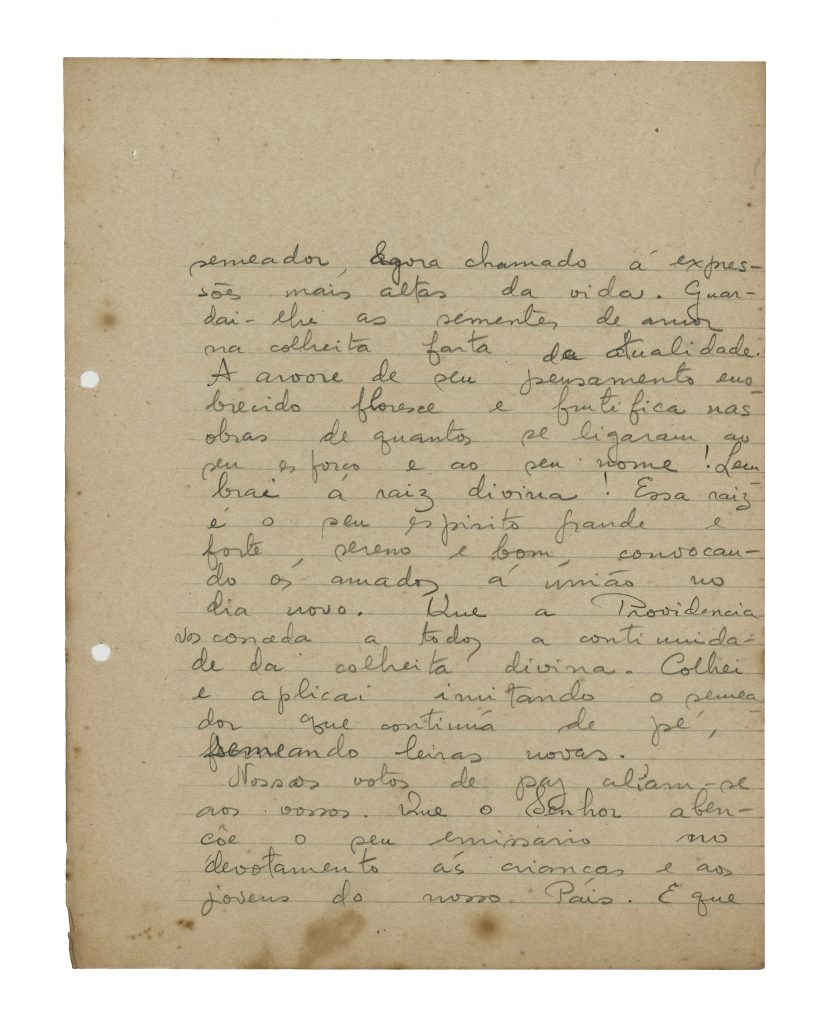 semeador, agora chamado á expres-
sões mais altas da vida. Guar-
dai-lhe as sementes de amor
na colheita farta da atualidade.
A arvore de seu pensamento eno-
brecido floresce e frutifica nas
obras de quantos se ligaram ao
seu esforço e ao seu nome! Lem-
brai á raiz divina! Essa raiz
é o seu espirito grande e
forte, sereno e bom, convocan-
do os amados á união no
dia novo. Que a Providencia
vos conceda a todos a continuida-
de da colheita divina. Colhei
e aplicai imitando o semea-
dor que continúa de pé,
semeando leiras novas.
Nossos votos de paz aliam-se
aos vossos. Que o Senhor aben-
çôe o seu emissario no
devotamento ás crianças e aos
jovens do nosso País. E que